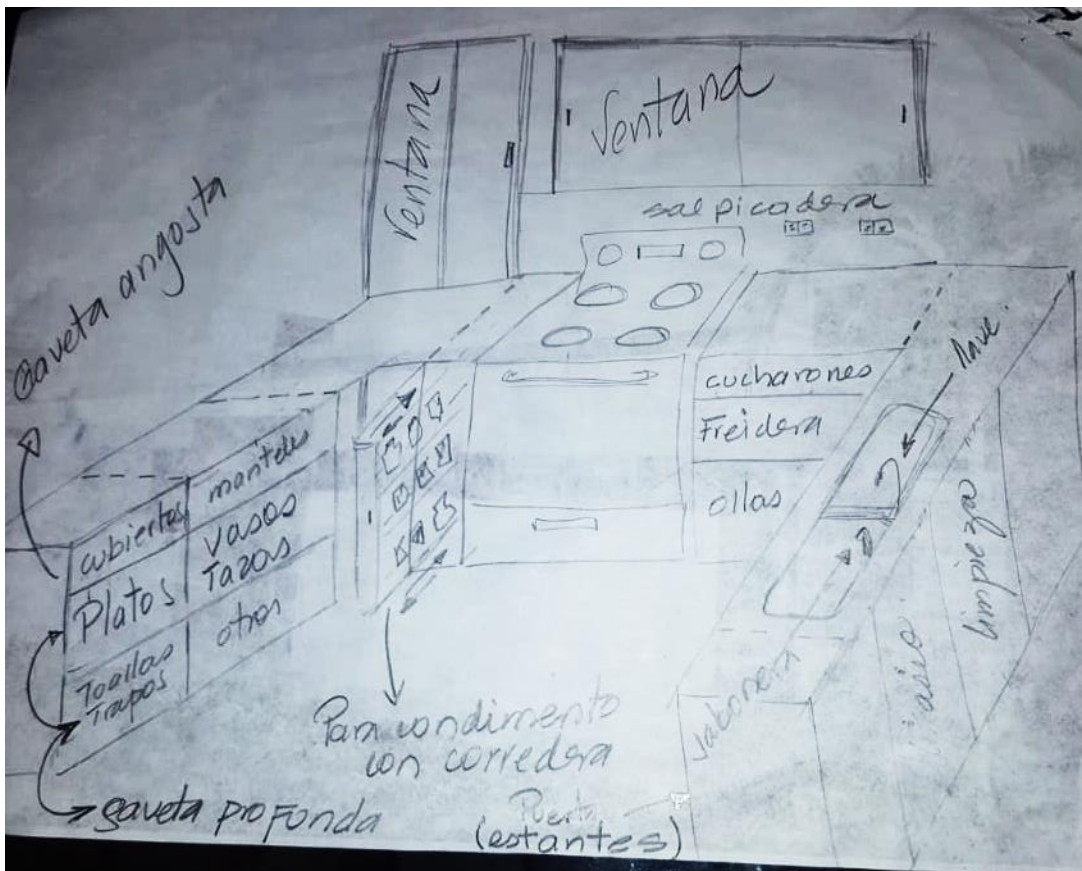 Ventana
Ventana
salpicadera
Gaveta angosta
llave.
cubiertos
manteles
Platos
Vasos
Tazas
Toallas
Trapos
otros
cucharones
Freidera
ollas
limpieza
vasio
sabonera
Para condimento
con corredera
gaveta profunda
Puerta
(estantes)